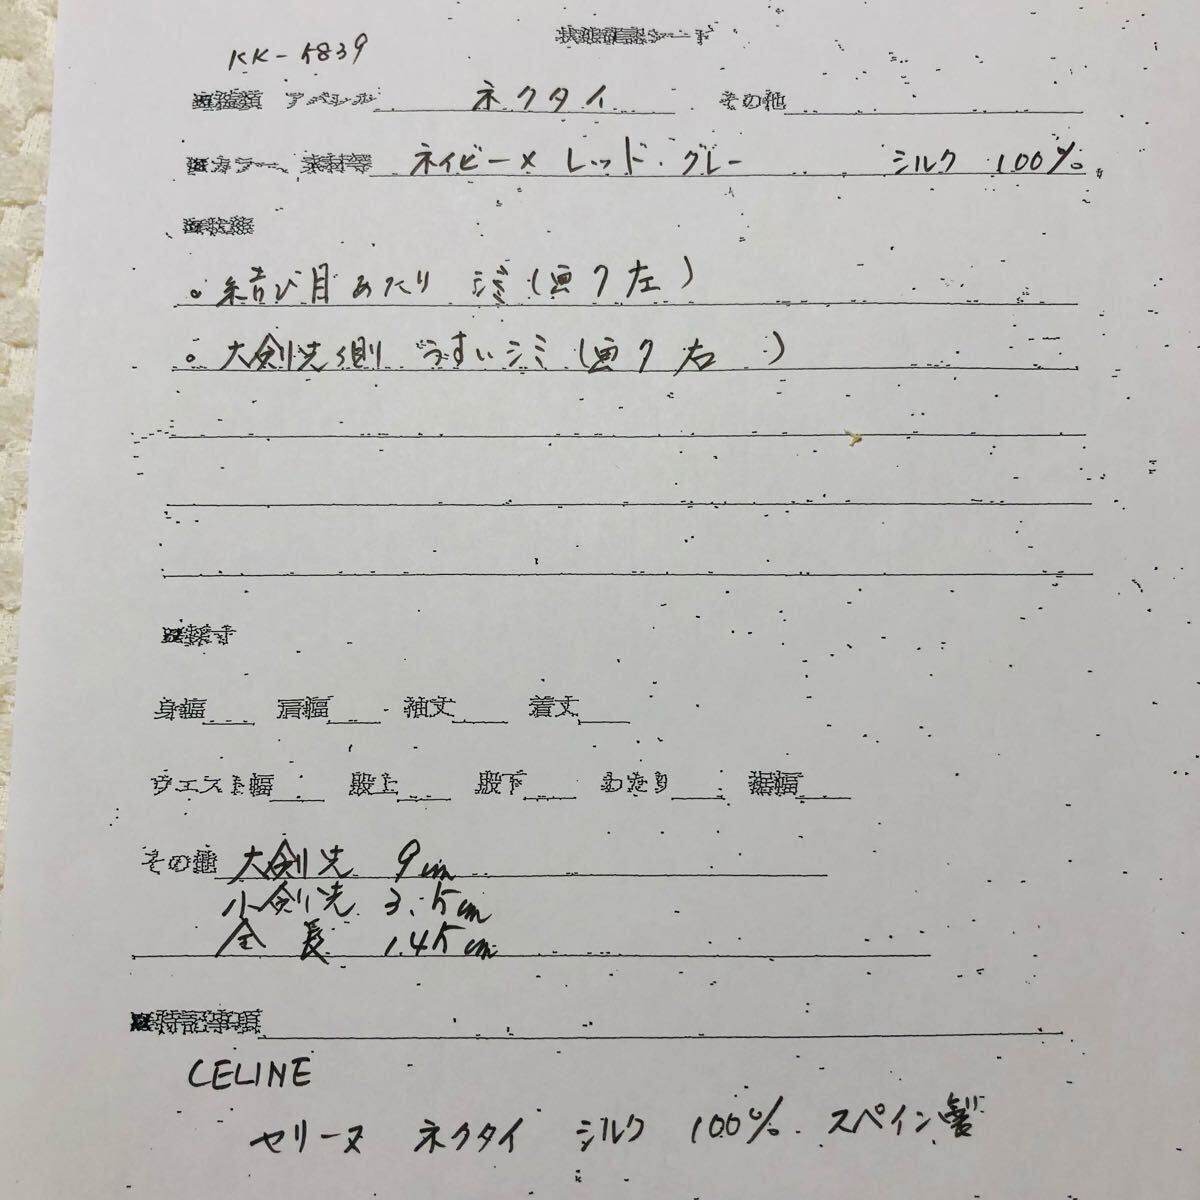 状態確認シート
KK-5839
■種類 アパレル ネクタイ その他
■カラー、素材等 ネイビー× レッド・グレー シルク 100%
■状態
○結び目あたり シミ(画ク左)
○大剣先側 うすいシミ(画ク右 )
■採寸
身幅 肩幅 袖丈 着丈
ウエスト幅 股上 股下 わたり 裾幅
その他 大剣先 9cm
小剣先 3.5cm
全長 145cm
■特記事項
CELINE
セリーヌ ネクタイ シルク 100% スペイン製